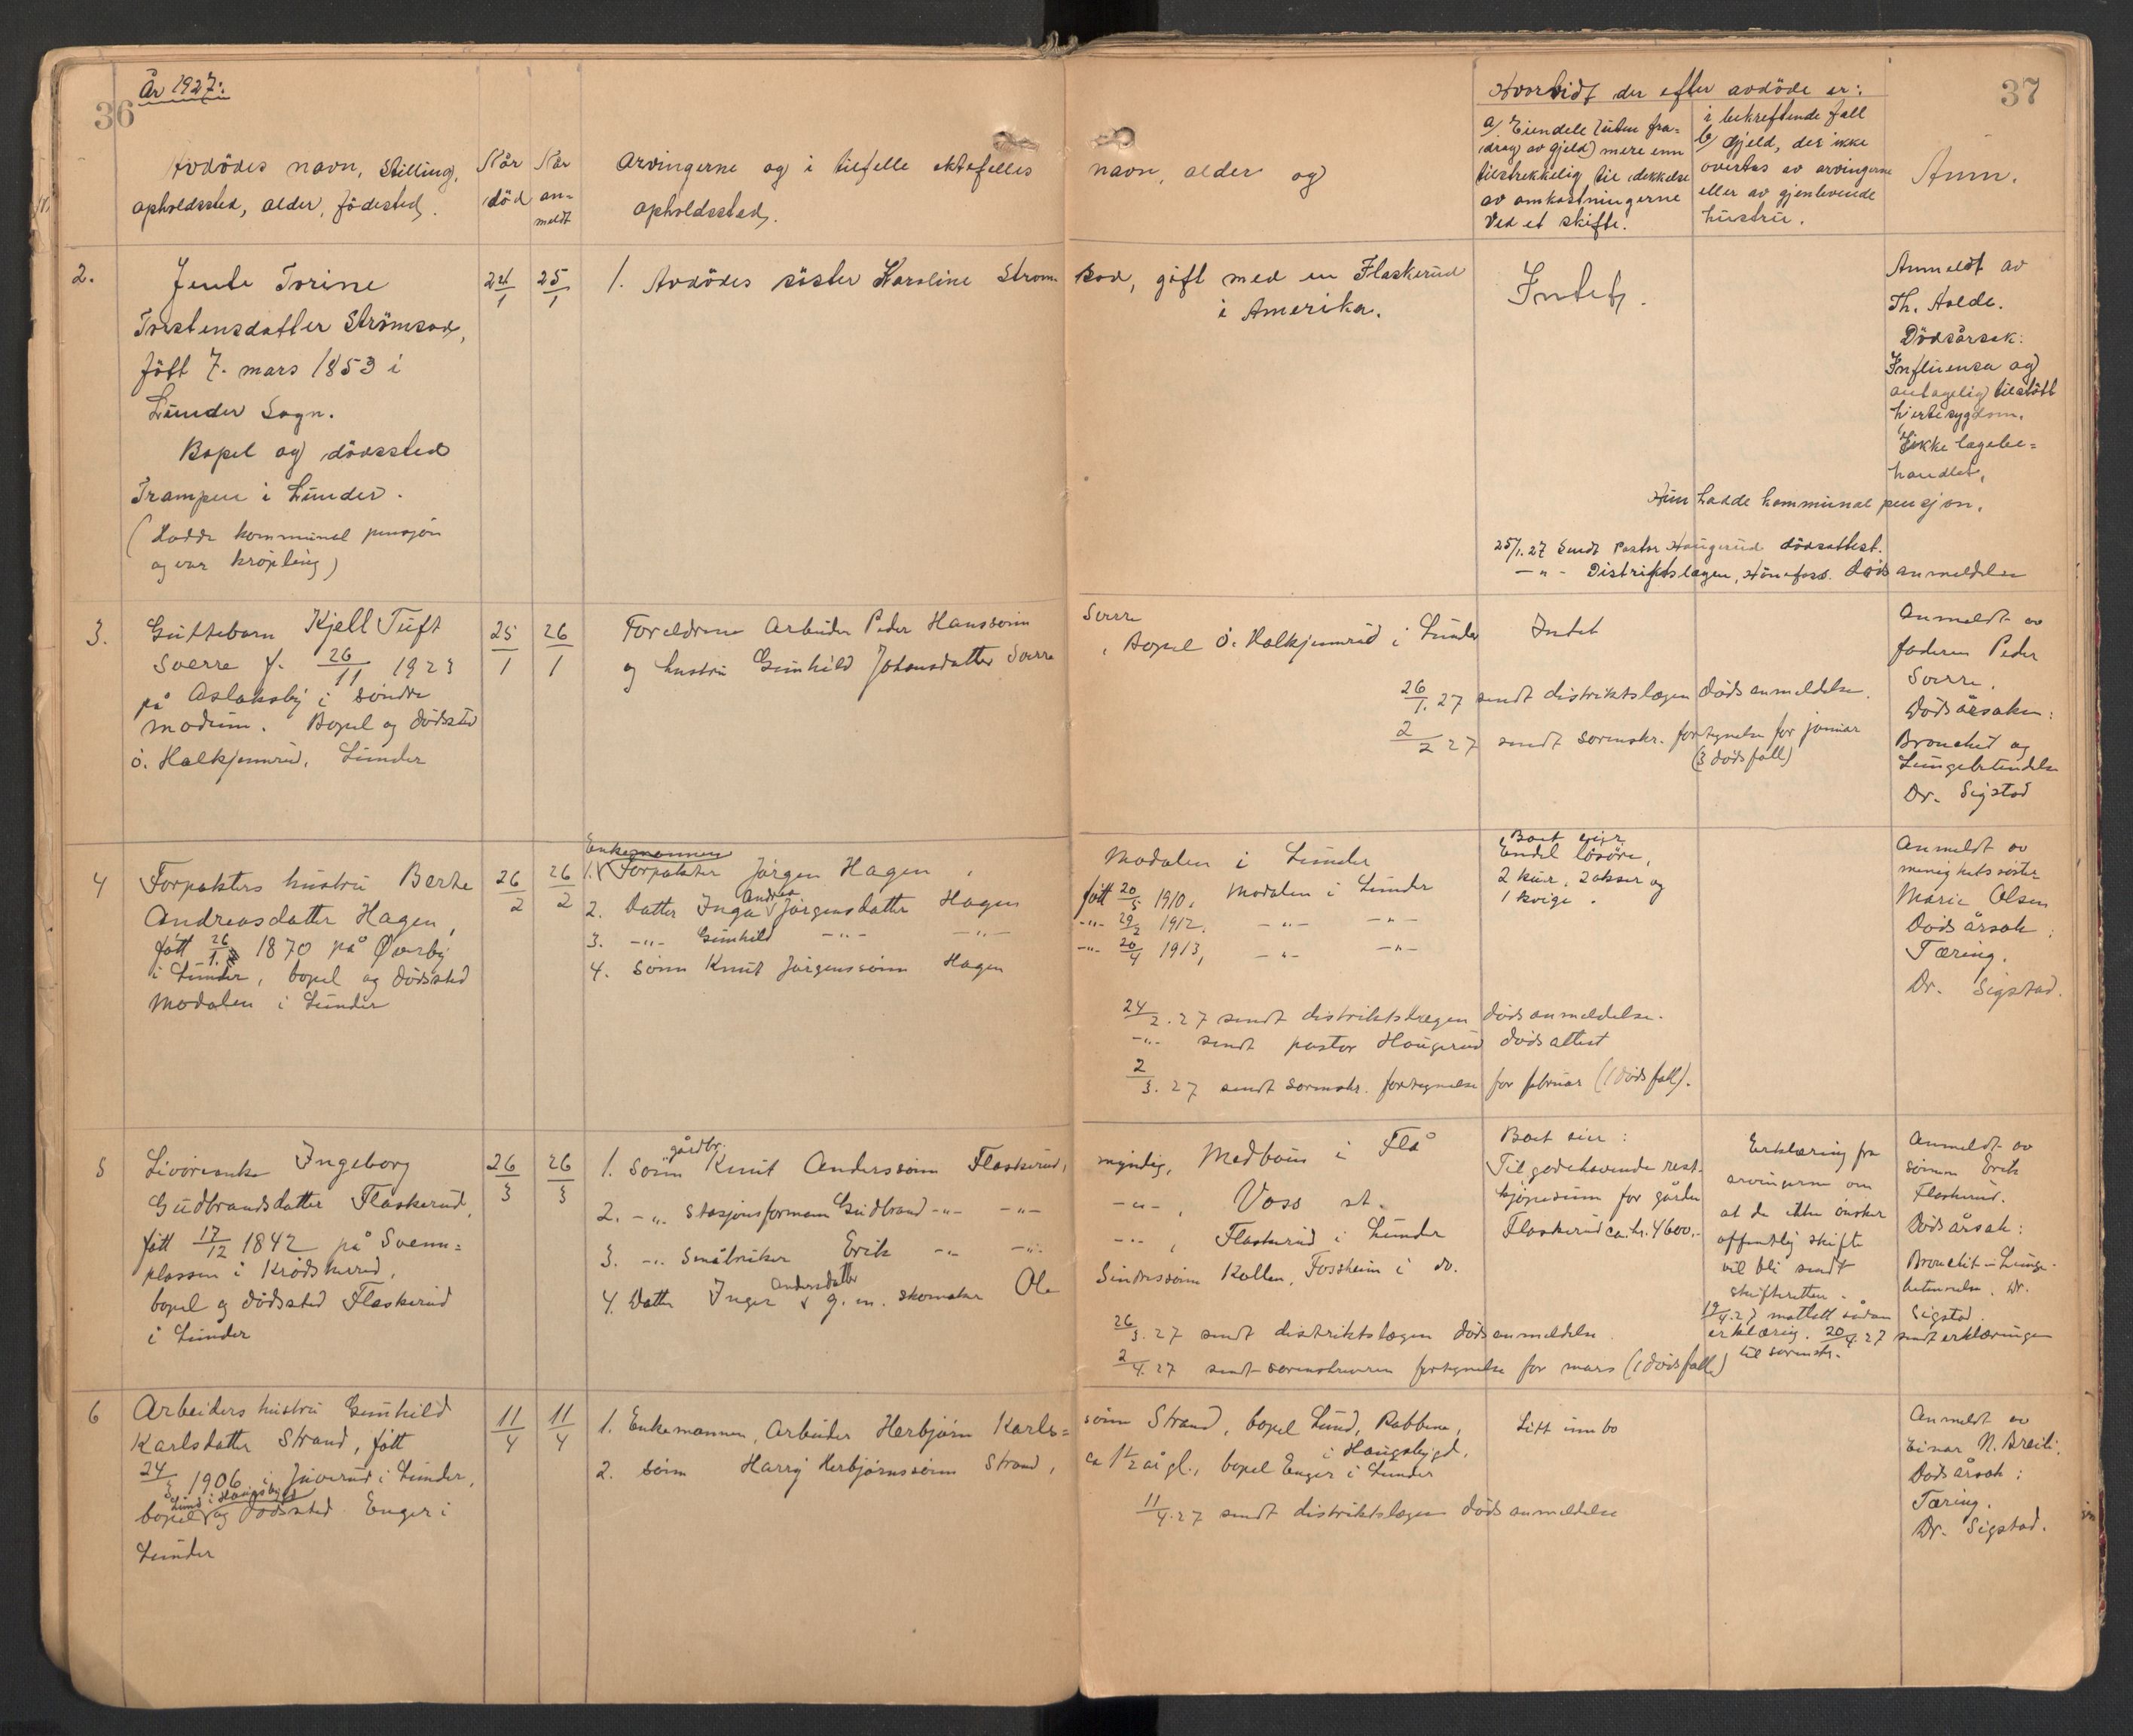 36
År 1927:
37
Avdödes navn, Stilling,
opholdssted, alder, födested.
Når
död
Når
an-
meldt
Arvingerne og i tilfelle ektefelles navn, alder og
opholdssted.
Hvorvidt der efter avdöde er:
a) Eiendele (uten fra-
drag av gjeld) mere enn
tilstrekkelig til dekkelse
av omkostningerne
ved et skifte.
i bekreftende fall
b) Gjeld, der ikke
overtas av arvingerne
eller av gjenlevende
hustru.
Anm.
2.
Jente Torine
Torstensdatter Strömsod,
född 7. mars 1853 i
Lunder Sogn.
Bopel og dödssted
Trampen i Lunder.
(Hadde kommunal pensjon
og var kröpling)
24/1
25/1
1. Avdödes söster Karoline Strom- sod, gift med en Flaskerud
i Amerika.
Intet.
Anmeldt av
Th. Holde.
Dödsårsak:
Influensa og
antagelig tilstött
hjertesygdom.
Ikke lægebe-
handlet.
Hun hadde kommunal pensjon.
25/1.27 Sendt Pastor Haugerud dödsattest.
-"- Distriktslægen, Hönefoss. dödsanmeldelse
3.
Guttebarn Kjell Tuft
Sverre f. 26/11 1923
på Aslaksby i söndre
Modum. Bopel og dödssted
ö. Halkjennrud, Lunder
25/1
26/1
Foreldrene Arbeider Peder Hanssönn Sverre
og hustru Gunhild Johansdatter Sverre, Bopel ö. Halkjennrud i Lunder
Intet
26/1.27 sendt distriktslægen dödsanmeldelse.
2/2 27 sendt sorenskr. fortegnelse for januar
(3 dödsfall)
Anmeldt av
faderen Peder
Sverre.
Dödsårsaken:
Bronchit og
Lungebetendelse
Dr. Sigstad
4
Forpakters hustru Berte
Andreasdatter Hagen,
född 26/1. 1870 på Överby
i Lunder, bopel og dödssted
Modalen i Lunder
26/2
26/2
Enkemannen
1. Forpakter Jörgen Hagen, Modalen i Lunder
2. Datter Inga Andrea Jörgensdatter Hagen född 20/5 1910. Modalen i Lunder
3. -"- Gunhild -"- -"- -"- 29/2 1912. -"- -"-
4. Sönn Knut Jörgenssönn Hagen -"- 20/4 1913, -"- -"-
Boet eier
Endel lösöre,
2 kuer, 2 okser og
1 kvige.
24/2.27 sendt distriktslægen dödsanmeldelse.
-"- sendt pastor Haugerud dödsattest
2/3.27 sendt sorenskr. fortegnelse for februar (1 dödsfall).
Anmeldt av
menighetssöster
Marie Olsen
Dödsårsak:
Tæring.
Dr. Sigstad.
5
Livörenke Ingeborg
Gudbrandsdatter Flaskerud,
född 17/12 1842 på Svenn-
plassen i Krödsherad,
bopel og dödssted Flaskerud
i Lunder
26/3
26/3
1. Sönn gårdbr. Knut Anderssönn Flaskerud, myndig, Medboen i Flå
2. -"- Stasjonsformann Gudbrand -"- -"- -"-, Voss st.
3. -"- Småbruker Erik -"- -"- -"-, Flaskerud i Lunder
4. Datter Inger Andersdatter g. m. skomaker Ole Sinderssönn Kollen, Fossheim i do.
Boet eier:
Tilgodehavende rest-
kjöpesum for gården
Flaskerud ca. kr. 4600.-
Erklæring fra
arvingerne om
at de ikke önsker
offentlig skifte
vil bli sendt
skifteretten.
19/4.27 mottatt sådan
erklæring. 20/4.27 sendt erklæringen
til sorenskr.
26/3.27 sendt distriktslægen dödsanmeldelse.
2/4.27 sendt sorenskriveren fortegnelse for mars (1 dödsfall)
Anmeldt av
sönnen Erik
Flaskerud.
Dödsårsak:
Bronchit-Lunge-
betennelse. Dr.
Sigstad.
6
Arbeiders hustru Gunhild
Karlsdatter Strand, född
24/3 1906 i Juverud i Lunder,
bopel Lund i Haugsbygd og dödssted Enger i
Lunder
11/4
11/4
1. Enkemannen, Arbeider Herbjörn Karls- sönn Strand, bopel Lund, Rabbene,
i Haugsbygd.
2. Sönn Harry Herbjörnssönn Strand, ca 1 1/2 år gl., bopel Enger i Lunder
Litt innbo
11/4.27 sendt distriktslægen dödsanmeldelse
Anmeldt av
Einar N. Breili.
Dödsårsak:
Tæring.
Dr. Sigstad.